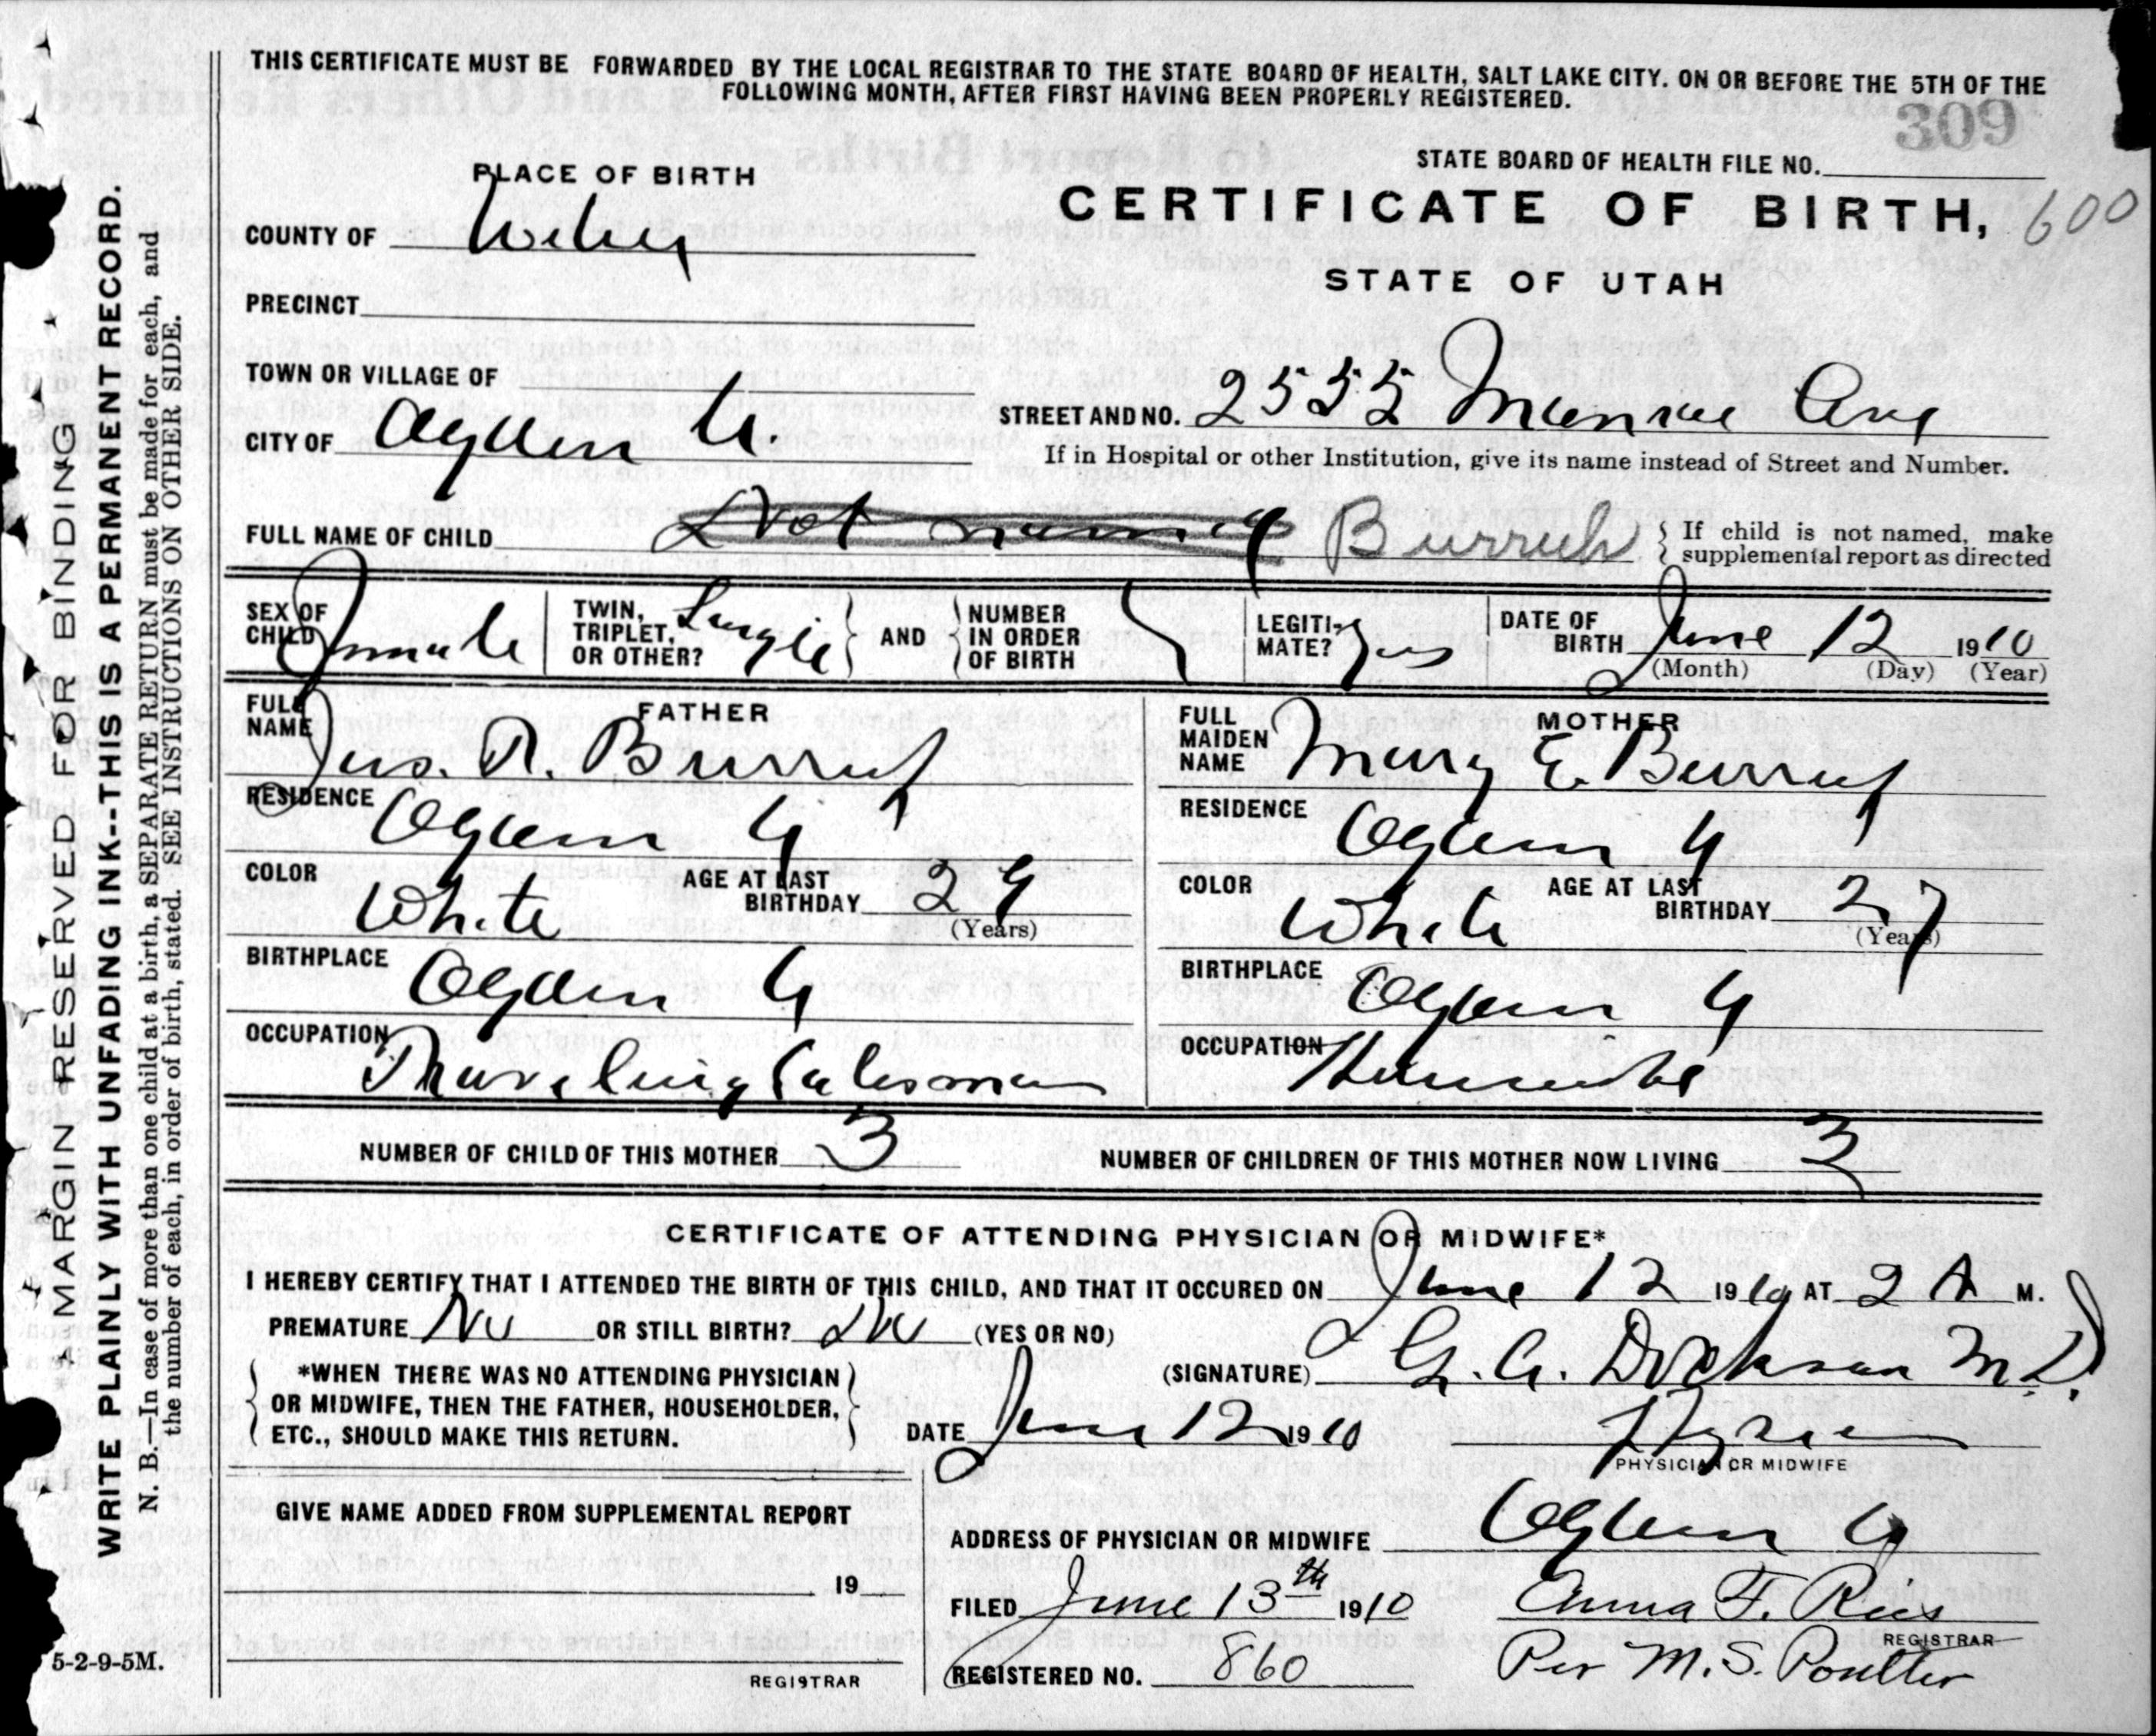 THIS CERTIFICATE MUST BE FORWARDED BY THE LOCAL REGISTRAR TO THE STATE BOARD OF HEALTH, SALT LAKE CITY. ON OR BEFORE THE 5TH OF THE
FOLLOWING MONTH, AFTER FIRST HAVING BEEN PROPERLY REGISTERED.
309
STATE BOARD OF HEALTH FILE NO.
PLACE OF BIRTH
CERTIFICATE OF BIRTH, 600
COUNTY OF Weber
STATE OF UTAH
PRECINCT
TOWN OR VILLAGE OF
STREET AND NO. 2555 Monroe Ave
CITY OF Ogden U.
If in Hospital or other Institution, give its name instead of Street and Number.
FULL NAME OF CHILD Not named Burrup
If child is not named, make
supplemental report as directed
SEX OF CHILD Female
TWIN, TRIPLET, OR OTHER? Single
AND
NUMBER IN ORDER OF BIRTH
LEGITI-MATE? Yes
DATE OF BIRTH June 12 1910
(Month) (Day) (Year)
FATHER
FULL NAME Jas. R. Burrup
RESIDENCE Ogden U
COLOR White AGE AT LAST BIRTHDAY 29
(Years)
BIRTHPLACE Ogden U
OCCUPATION Traveling Salesman
MOTHER
FULL MAIDEN NAME Mary E. Burrup
RESIDENCE Ogden U
COLOR White AGE AT LAST BIRTHDAY 27
(Years)
BIRTHPLACE Ogden U
OCCUPATION Housewife
NUMBER OF CHILD OF THIS MOTHER 3 NUMBER OF CHILDREN OF THIS MOTHER NOW LIVING 3
CERTIFICATE OF ATTENDING PHYSICIAN OR MIDWIFE*
I HEREBY CERTIFY THAT I ATTENDED THE BIRTH OF THIS CHILD, AND THAT IT OCCURED ON June 12 1910 AT 2 A M.
PREMATURE No OR STILL BIRTH? No (YES OR NO)
*WHEN THERE WAS NO ATTENDING PHYSICIAN
OR MIDWIFE, THEN THE FATHER, HOUSEHOLDER,
ETC., SHOULD MAKE THIS RETURN.
(SIGNATURE) G. A. Dickson M.D.
DATE June 12 1910
PHYSICIAN OR MIDWIFE
GIVE NAME ADDED FROM SUPPLEMENTAL REPORT
19
REGISTRAR
ADDRESS OF PHYSICIAN OR MIDWIFE Ogden U
FILED June 13th 1910 Emma F. Ries
REGISTRAR
REGISTERED NO. 860 Per M. S. Poulter
MARGIN RESERVED FOR BINDING
WRITE PLAINLY WITH UNFADING INK--THIS IS A PERMANENT RECORD.
N. B.—In case of more than one child at a birth, a SEPARATE RETURN must be made for each, and
the number of each, in order of birth, stated. SEE INSTRUCTIONS ON OTHER SIDE.
5-2-9-5M.